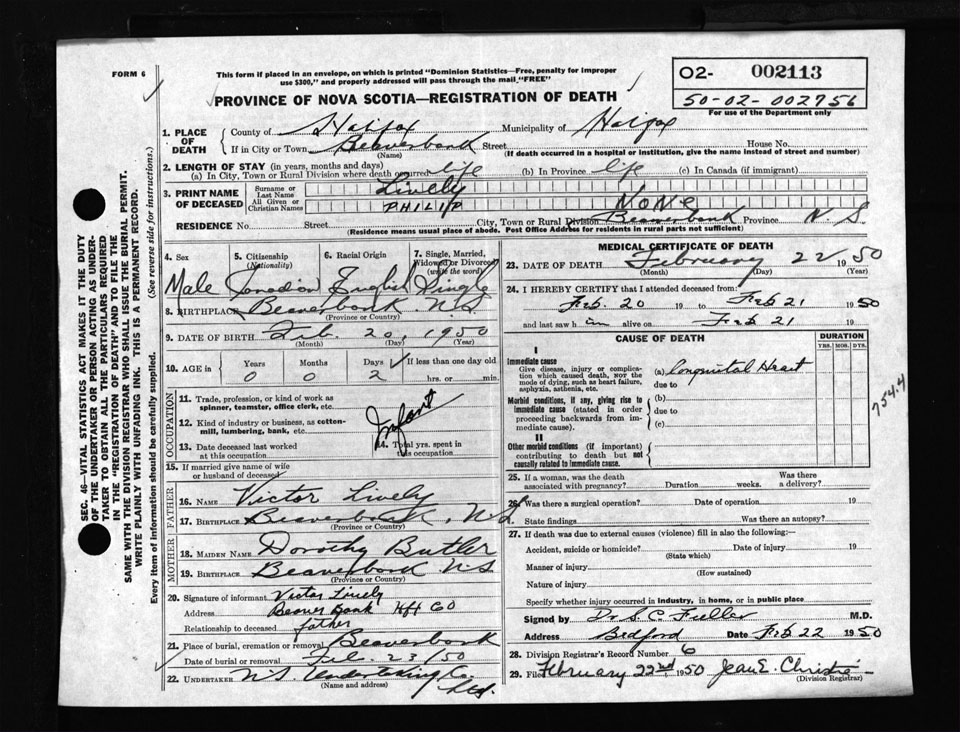 FORM 6
This form if placed in an envelope, on which is printed "Dominion Statistics—Free, penalty for improper
use $300," and properly addressed will pass through the mail "FREE"
PROVINCE OF NOVA SCOTIA—REGISTRATION OF DEATH
02- 002113
50-02-002756
For use of the Department only
1. PLACE OF DEATH
County of Halifax Municipality of Halifax
If in City or Town Beaverbank Street House No.
(Name) (If death occurred in a hospital or institution, give the name instead of street and number)
2. LENGTH OF STAY (in years, months and days)
(a) In City, Town or Rural Division where death occurred life (b) In Province life (c) In Canada (if immigrant)
3. PRINT NAME OF DECEASED
Surname or Last Name Lively
All Given or Christian Names PHILIP NONE
RESIDENCE No. Street City, Town or Rural Division Beaverbank Province N.S.
(Residence means usual place of abode. Post Office Address for residents in rural parts not sufficient)
4. Sex 5. Citizenship (Nationality) 6. Racial Origin 7. Single, Married, Widowed or Divorced (write the word)
Male Canadian English Single
8. BIRTHPLACE Beaverbank N.S.
(Province or Country)
9. DATE OF BIRTH Feb. 20, 1950
(Month) (Day) (Year)
10. AGE in Years Months Days If less than one day old
0 0 2 hrs. or min.
OCCUPATION
11. Trade, profession, or kind of work as
spinner, teamster, office clerk, etc.
12. Kind of industry or business, as cotton-
mill, lumbering, bank, etc.
Infant
13. Date deceased last worked
at this occupation
14. Total yrs. spent in
this occupation
15. If married give name of wife
or husband of deceased
FATHER
16. NAME Victor Lively
17. BIRTHPLACE Beaverbank, N.S.
(Province or Country)
MOTHER
18. MAIDEN NAME Dorothy Butler
19. BIRTHPLACE Beaverbank N.S
(Province or Country)
20. Signature of informant Victor Lively
Address Beaver Bank Hfx Co
Relationship to deceased father
21. Place of burial, cremation or removal Beaverbank
Date of burial or removal Feb. 23/50
22. UNDERTAKER N.S. Undertaking Co. Ltd.
(Name and address)
MEDICAL CERTIFICATE OF DEATH
23. DATE OF DEATH February 22 1950
(Month) (Day) (Year)
24. I HEREBY CERTIFY that I attended deceased from:
Feb. 20 19 to Feb 21 1950
and last saw h im alive on Feb 21 19
CAUSE OF DEATH
DURATION
YRS. MOS. DYS.
I
Immediate cause
Give disease, injury or complica-
tion which caused death, NOT the
mode of dying, such as heart failure,
asphyxia, asthenia, etc.
(a) Congenital Heart
due to
Morbid conditions, if any, giving rise to
immediate cause (stated in order
proceeding backwards from im-
mediate cause).
(b)
due to
(c)
II
Other morbid conditions (if important)
contributing to death but not
causally related to immediate cause.
754.4
25. If a woman, was the death
associated with pregnancy? Duration weeks. Was there
a delivery?
26. Was there a surgical operation? Date of operation 19
State findings Was there an autopsy?
27. If death was due to external causes (violence) fill in also the following:—
Accident, suicide or homicide? Date of injury 19
(State which)
Manner of injury
(How sustained)
Nature of injury
Specify whether injury occurred in industry, in home, or in public place
Signed by Dr S C. Fuller M.D.
Address Bedford Date Feb 22 1950
28. Division Registrar's Record Number 6
29. Filed February 22nd, 1950 Jean E. Christie
(Division Registrar)
SEC. 46—VITAL STATISTICS ACT MAKES IT THE DUTY
OF THE UNDERTAKER OR PERSON ACTING AS UNDER-
TAKER TO OBTAIN ALL THE PARTICULARS REQUIRED
IN THE "REGISTRATION OF DEATH" AND TO FILE THE
SAME WITH THE DIVISION REGISTRAR WHO SHALL ISSUE THE BURIAL PERMIT.
WRITE PLAINLY WITH UNFADING INK. THIS IS A PERMANENT RECORD.
Every item of information should be carefully supplied. (See reverse side for instructions.)